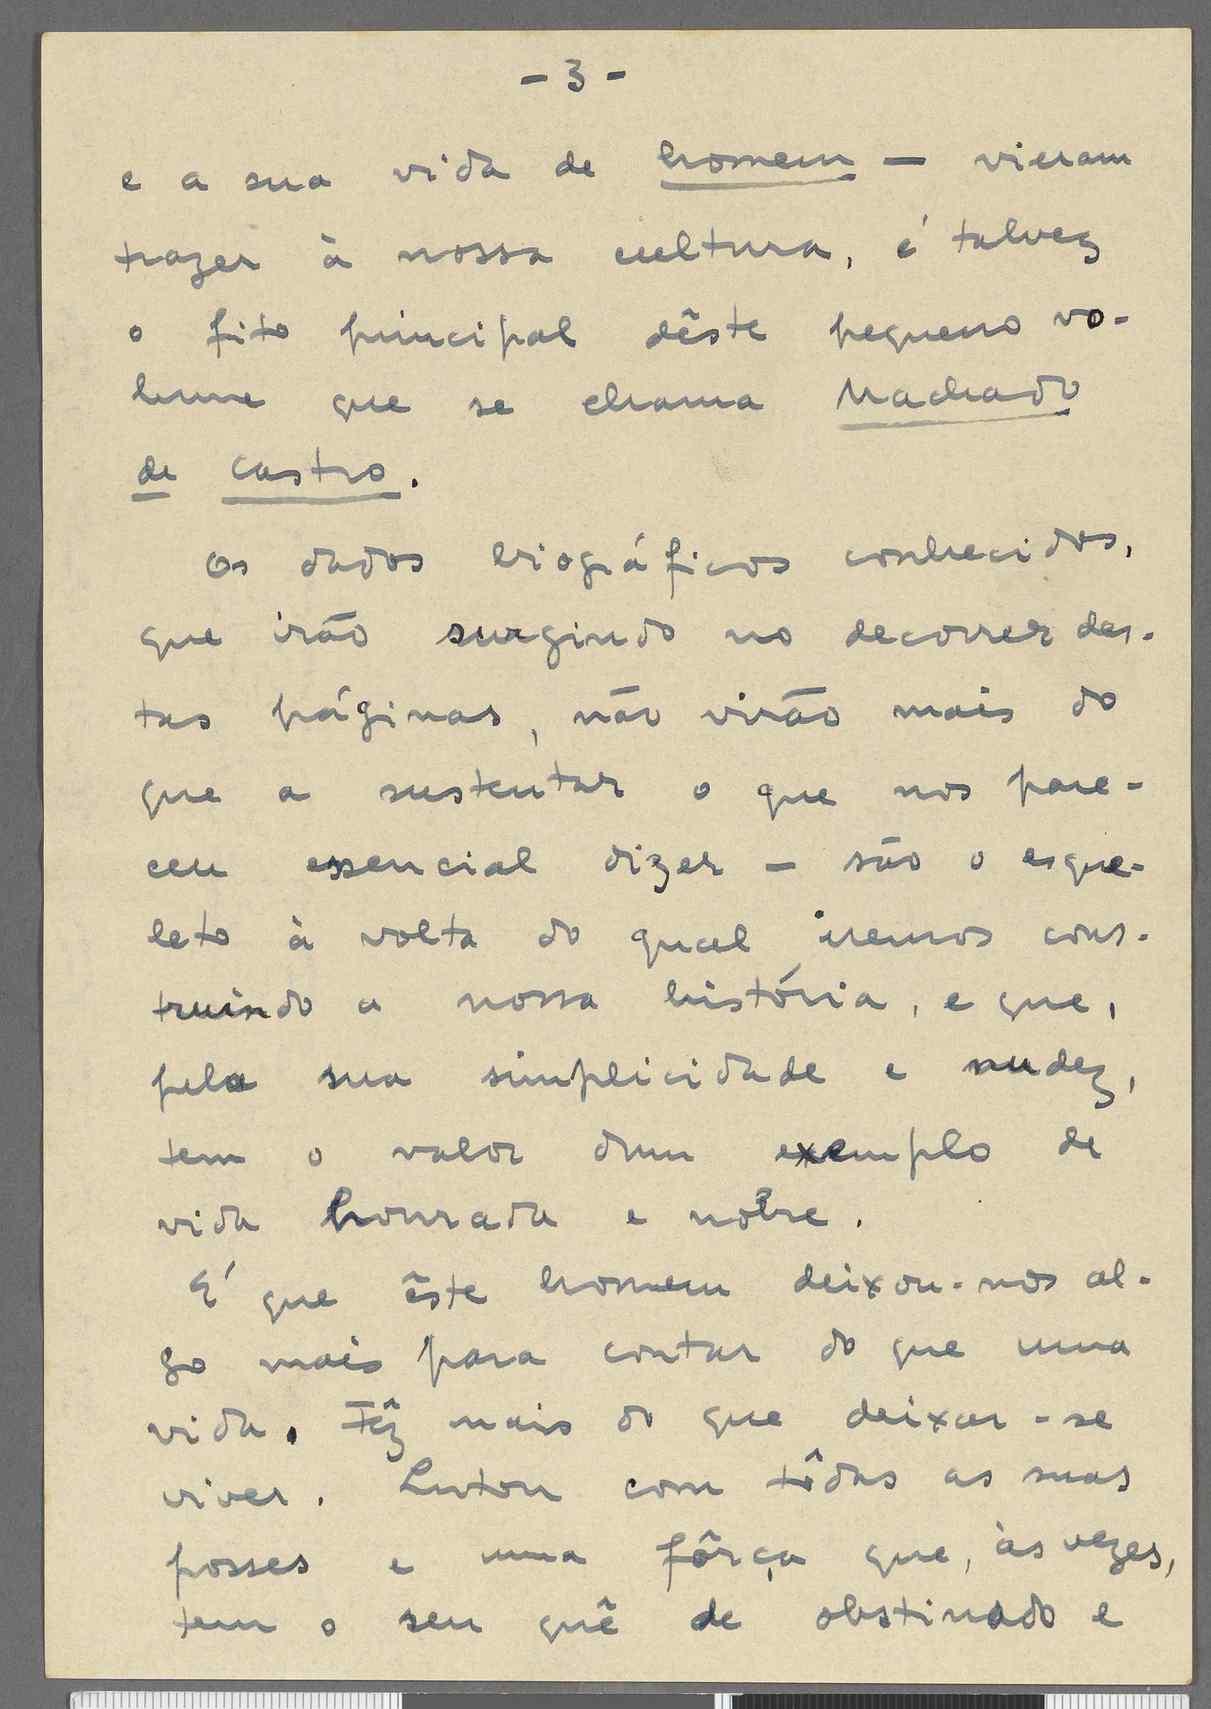 - 3 -
e a sua vida de homem — vieram
trazer à nossa cultura, é talvez
o fito principal dêste pequeno vo-
lume que se chama Machado
de Castro.
Os dados biográficos conhecidos,
que irão surgindo no decorrer des-
tas páginas, não virão mais do
que a sustentar o que nos pare-
ceu essencial dizer — são o esque-
leto à volta do qual iremos cons-
truindo a nossa história, e que,
pela sua simplicidade e nudez,
tem o valor dum exemplo de
vida honrada e nobre.
É que êste homem deixou-nos al-
go mais para contar do que uma
vida. Fêz mais do que deixar-se
viver. Lutou com tôdas as suas
posses e uma fôrça que, às vezes,
tem o seu quê de obstinado e